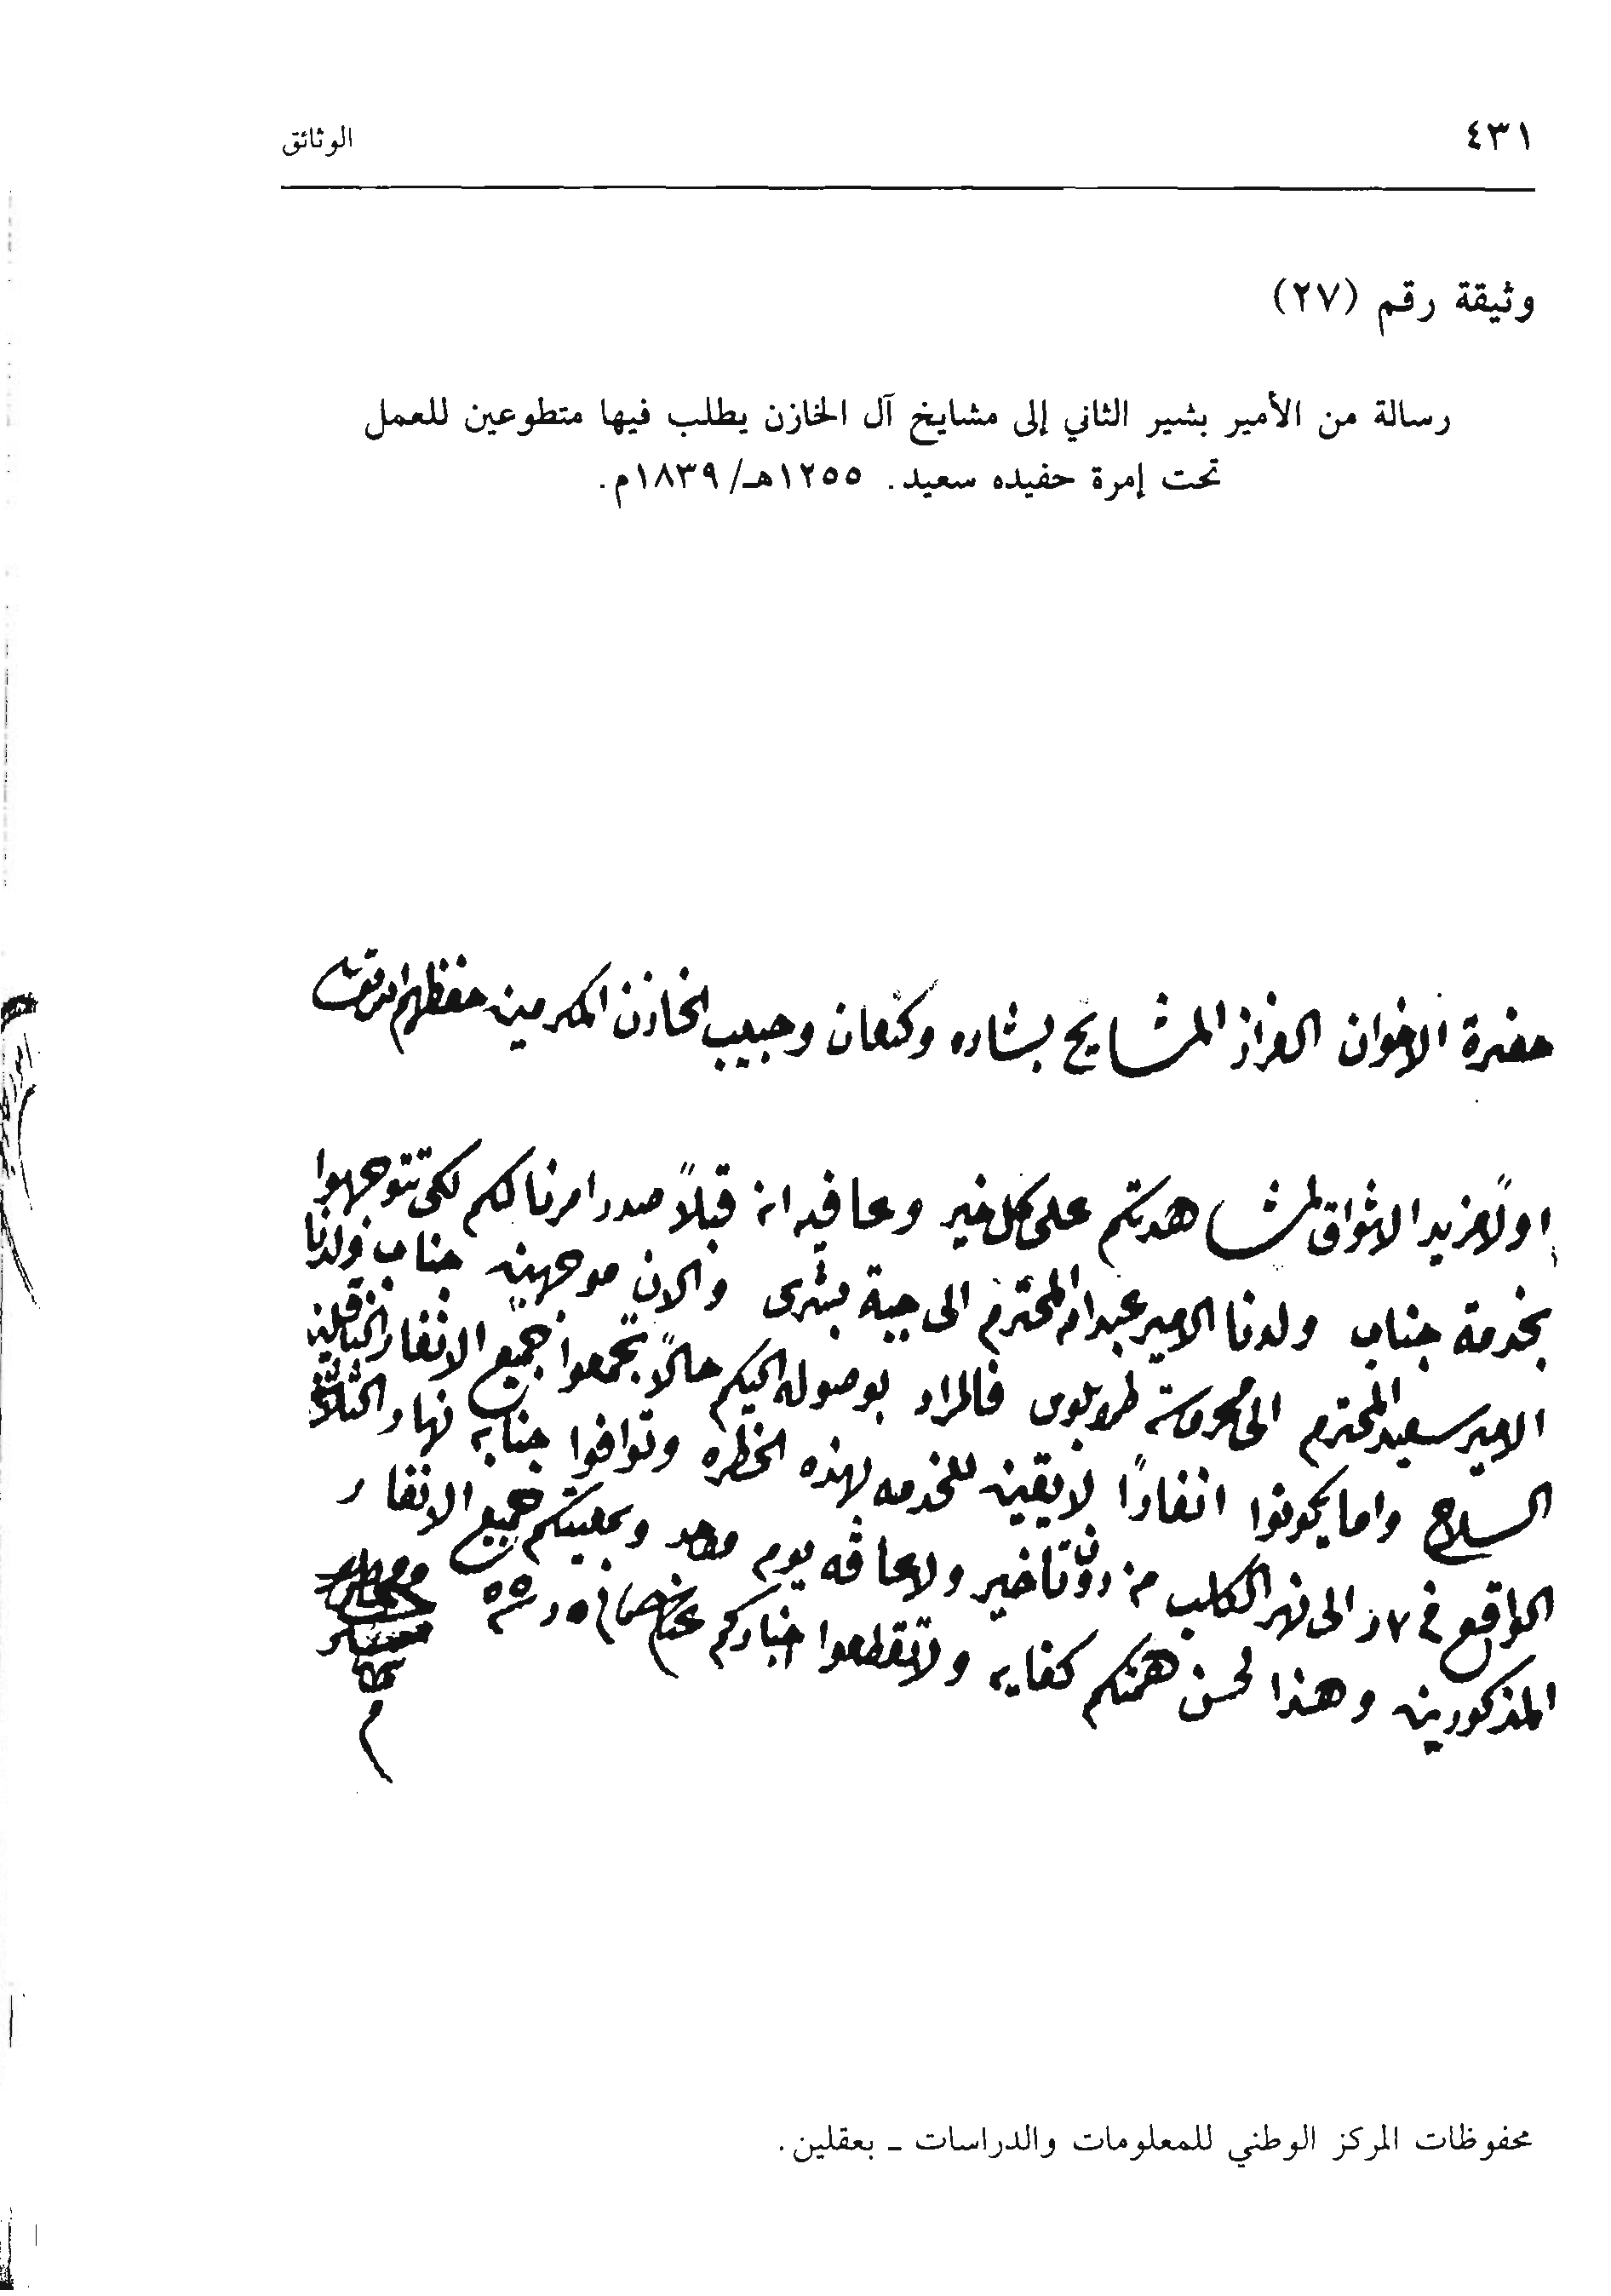 ٤٣١
الوثائق
وثيقة رقم (٢٧)
رسالة من الأمير بشير الثاني إلى مشايخ آل الخازن يطلب فيها متطوعين للعمل
تحت إمرة حفيده سعيد. ١٢٥٥هـ/١٨٣٩م.
حضرة الاخوان العزاز المشايخ بشاره وكنعان وحبيب الخازن المكرمين حفظهم الله تعالى
اولاً مزيد الاشواق لمشاهدتكم على كل خير وعافيه انه قبلاً صدر امرنا لكم لكي تتوجهوا
بخدمة جناب ولدنا الامير عبدالله المحترم الى جبة بشرى والان موجهين جناب ولدنا
الامير سعيد المحترم الى محروسة طرابلوس فالمراد بوصوله اليكم حالاً تجمعوا جميع الانفار الناقلين
السلاح واما يكونوا انفاراً لايقين للخدمه بهذه الخطره وتوافوا جنابه نهار الثلاثا
الواقع في ٧ر الى نهر الكلب من دون تاخير ولا عاقه يوم واحد وبمعيتكم جميع الانفار
المذكورين وهذا لحسن همتكم كفايه ولا تقطعوا اخباركم عنا في ٥ر سنة ٥٥
محفوظات المركز الوطني للمعلومات والدراسات ـ بعقلين.